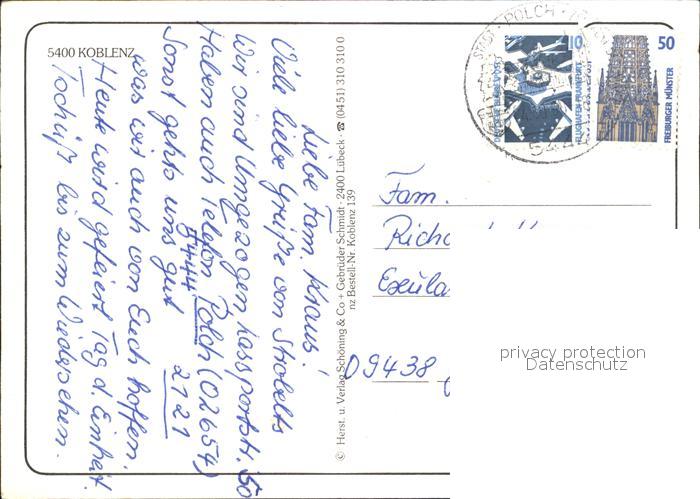 5400 KOBLENZ
Liebe Fam. Kraus!
Viele liebe Grüße von Strobelts
Wir sind Umgezogen 50
Haben auch Telefon Polch (02654)
5444 2121
Sonst gehts uns gut
was wir auch von Euch hoffen.
Heute wird gefeiert Tag d. Einheit.
Tschüß bis zum Wiedersehen.
© Herst. u. Verlag Schöning & Co + Gebrüder Schmidt · 2400 Lübeck · ☎ (0451) 310 310 0
nz Bestell-Nr. Koblenz 139
POLCH
544
10
FLUGHAFEN FRANKFURT
50
FREIBURGER MÜNSTER
Fam.
09438
privacy protection
Datenschutz